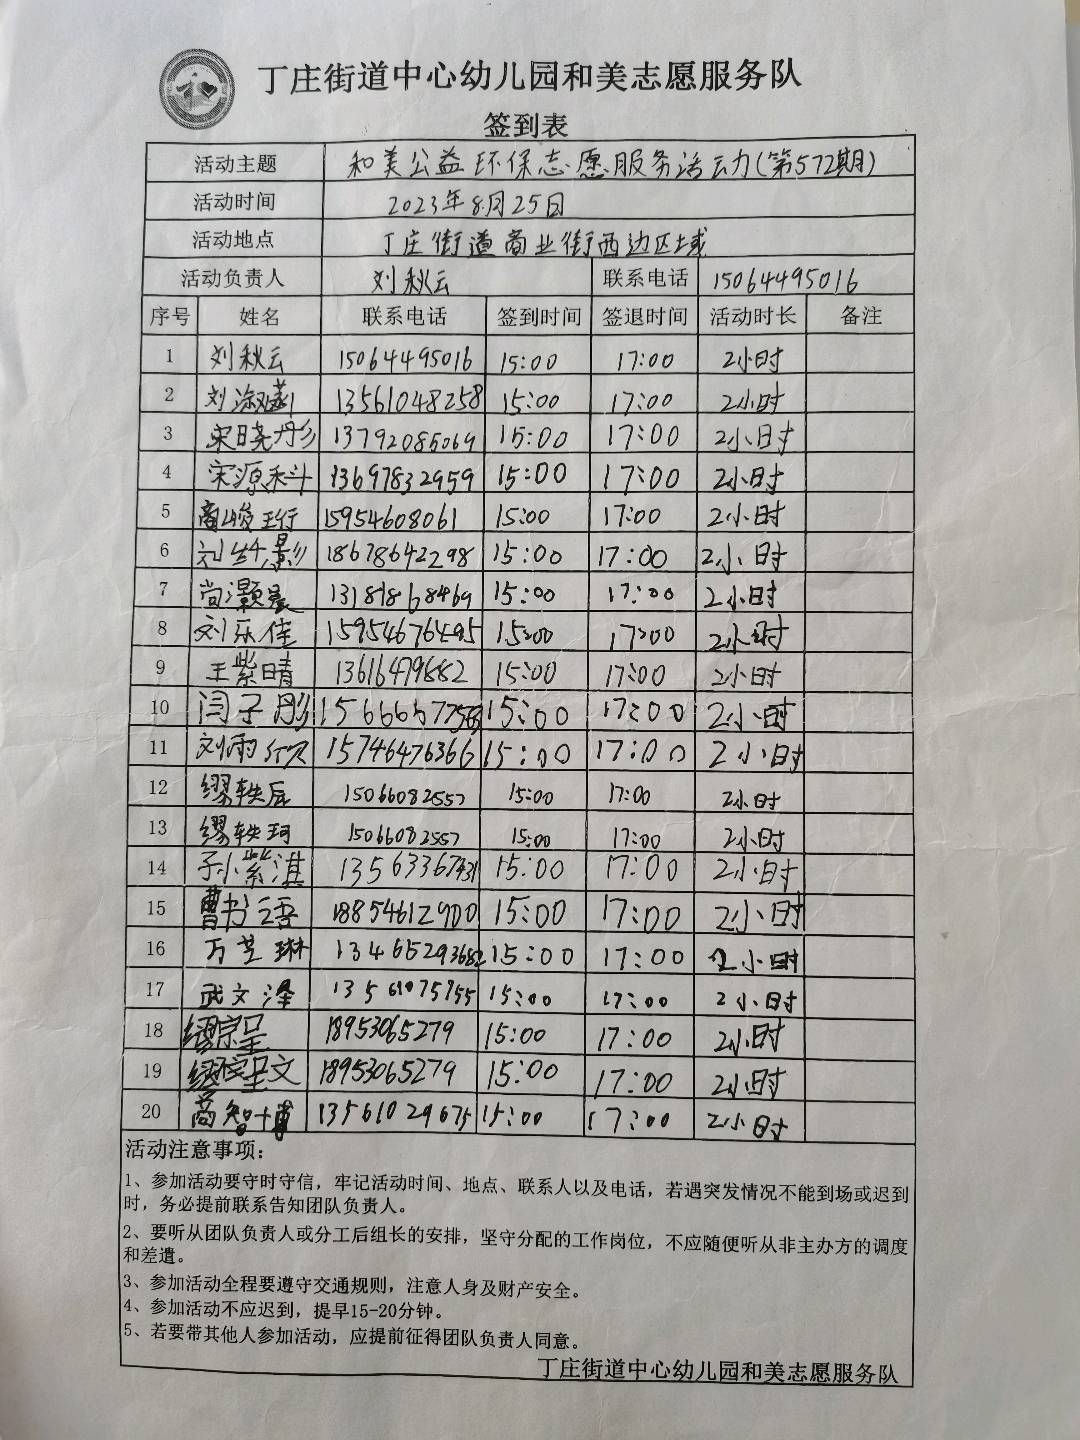 丁庄街道中心幼儿园和美志愿服务队
签到表
活动主题 和美公益环保志愿服务活动(第572期)
活动时间 2023年8月25日
活动地点 丁庄街道商业街西边区域
活动负责人 刘秋云 联系电话 15064495016
序号 姓名 联系电话 签到时间 签退时间 活动时长 备注
1 刘秋云 15064495016 15:00 17:00 2小时
2 刘淑 13561048258 15:00 17:00 2小时
3 宋晓彤 13792085069 15:00 17:00 2小时
4 宋源科 13697832959 15:00 17:00 2小时
5 商峻珩 15954608061 15:00 17:00 2小时
6 刘 影 18678642298 15:00 17:00 2小时
7 尚灏晨 13181868469 15:00 17:00 2小时
8 刘乐佳 15954676495 15:00 17:00 2小时
9 王紫晴 13616479882 15:00 17:00 2小时
10 闫子彤 15:00 17:00 2小时
11 刘雨欣 15746476366 15:00 17:00 2小时
12 缪轶辰 15066082557 15:00 17:00 2小时
13 缪轶珂 15066082557 15:00 17:00 2小时
14 孙紫淇 13563367431 15:00 17:00 2小时
15 曹书语 18854612900 15:00 17:00 2小时
16 万芝琳 13465293682 15:00 17:00 2小时
17 武文泽 13561075755 15:00 17:00 2小时
18 缪宗呈 18953065279 15:00 17:00 2小时
19 缪 文 18953065279 15:00 17:00 2小时
20 商智博 13561029675 15:00 17:00 2小时
活动注意事项：
1、参加活动要守时守信，牢记活动时间、地点、联系人以及电话，若遇突发情况不能到场或迟到
时，务必提前联系告知团队负责人。
2、要听从团队负责人或分工后组长的安排，坚守分配的工作岗位，不应随便听从非主办方的调度
和差遣。
3、参加活动全程要遵守交通规则，注意人身及财产安全。
4、参加活动不应迟到，提早15-20分钟。
5、若要带其他人参加活动，应提前征得团队负责人同意。
丁庄街道中心幼儿园和美志愿服务队